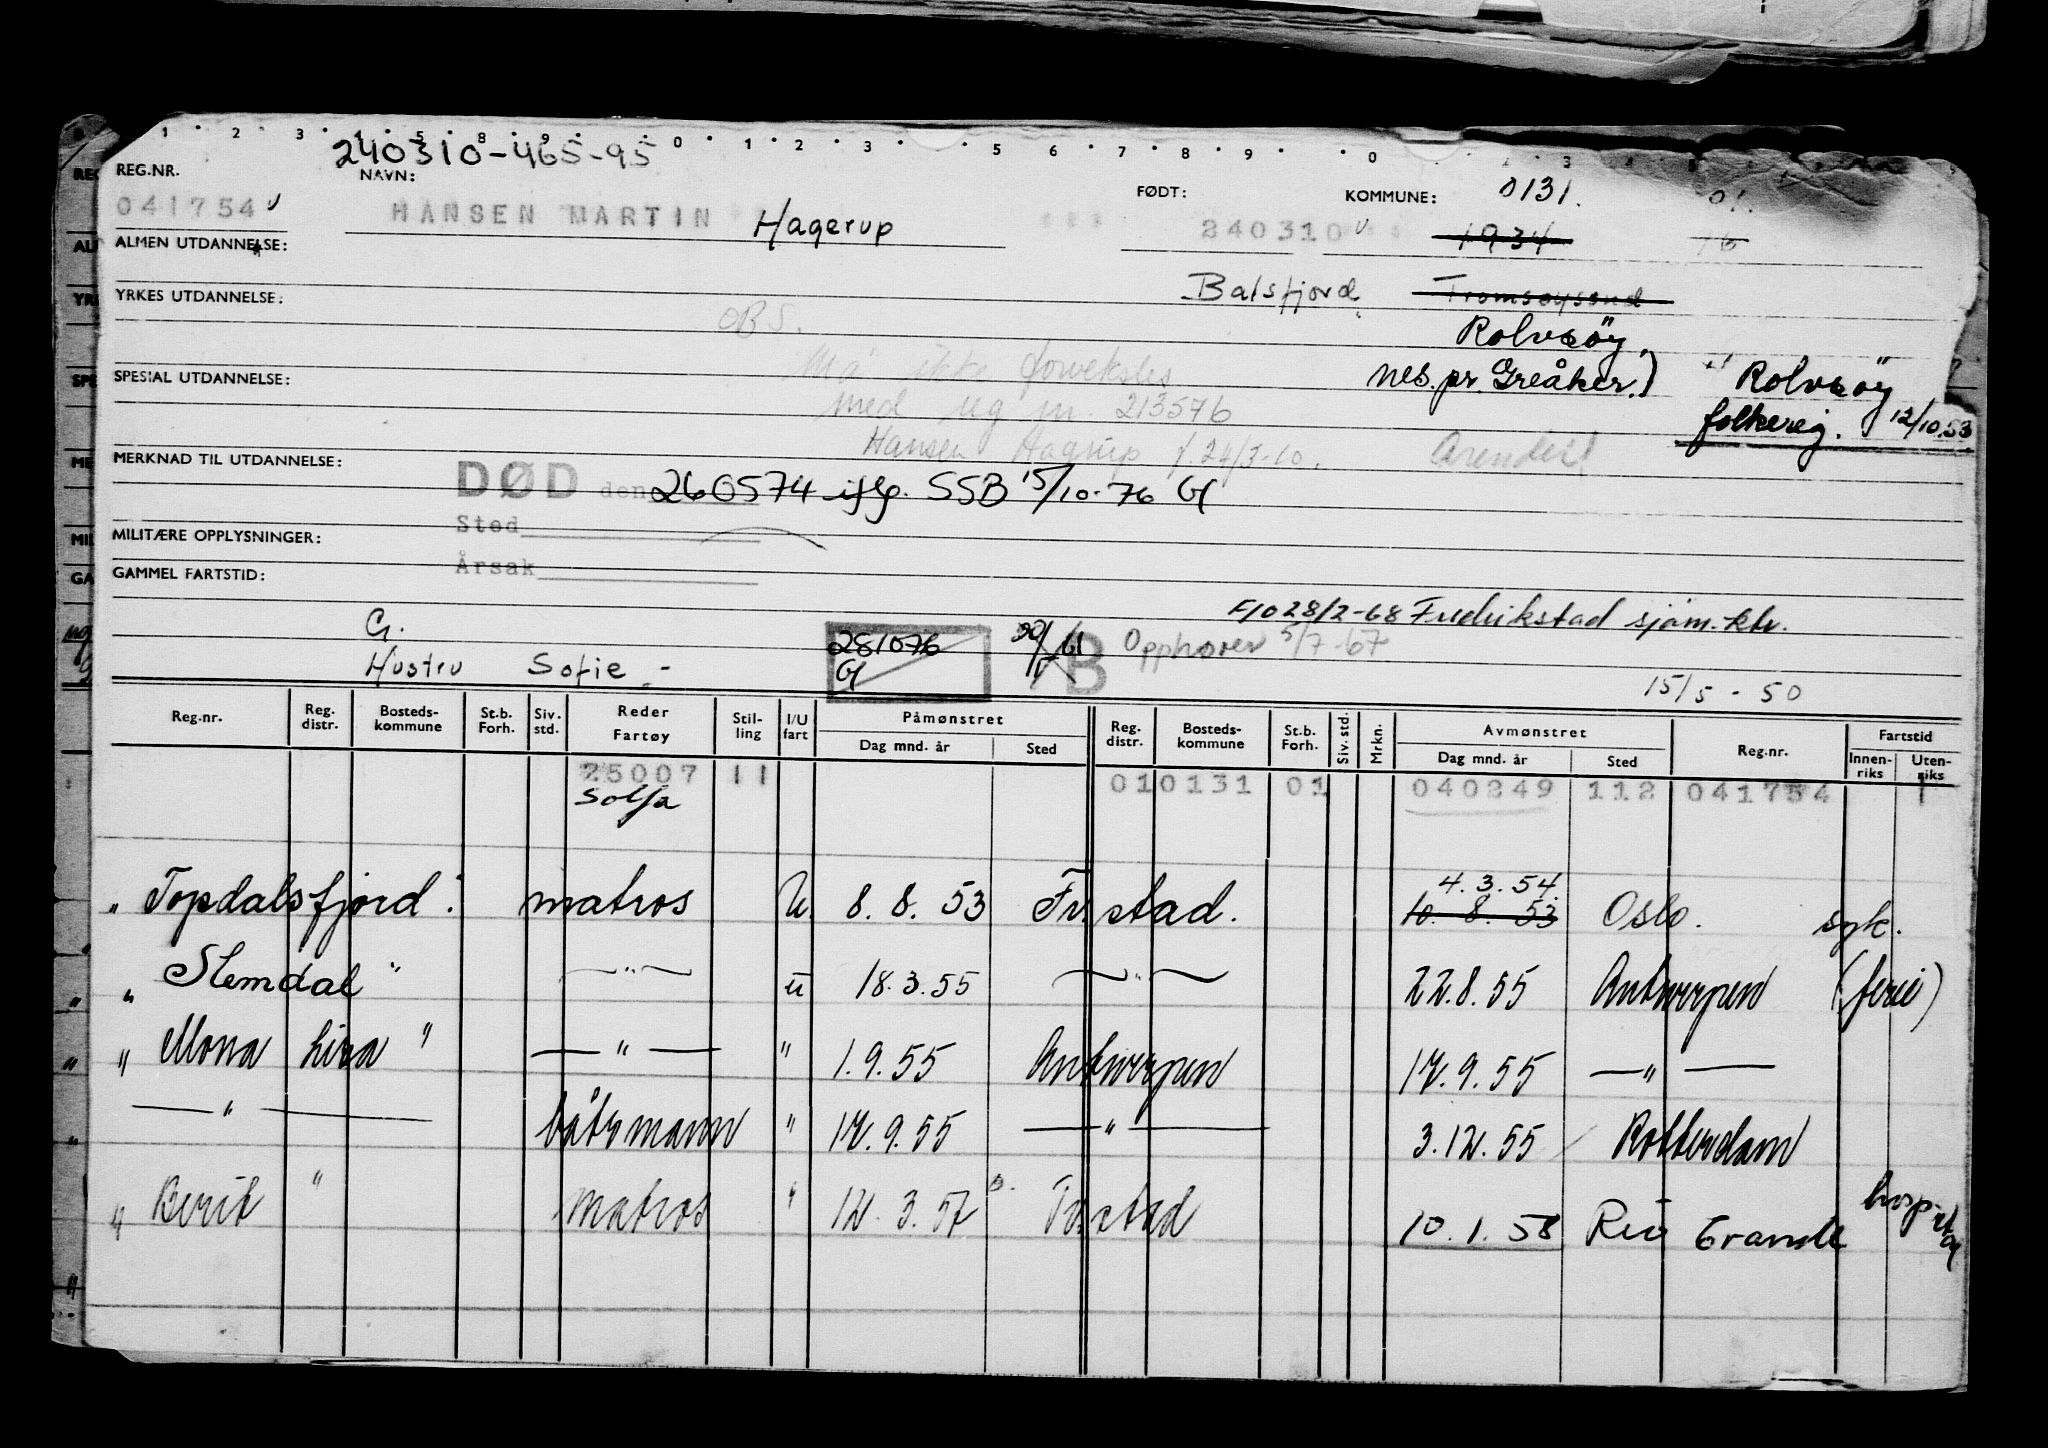 240310-465-95
REG.NR. NAVN: FØDT: KOMMUNE: 0131.
041754 HANSEN MARTIN Hagerup 240310 1934
ALMEN UTDANNELSE:
Balsfjord Tromsøysund
YRKES UTDANNELSE:
OBS. Rolvsöy,
Må ikke forveksles nes. pr. Greåker.) Rolvsöy
SPESIAL UTDANNELSE:
med reg nr. 213576 folkereg. 12/10.53
Hansen Hagrup f. 24/3-10. Arendal
MERKNAD TIL UTDANNELSE:
DØD den 260574 iflg. SSB 15/10-76 G
Sted
MILITÆRE OPPLYSNINGER:
Årsak
GAMMEL FARTSTID:
28/2-68 Fredrikstad sjøm.ktr.
G. 281076 B Opphører 5/7-67
Hustru Sofie - G 15/5-50
Reg.nr. Reg. distr. Bosteds-kommune St.b. Forh. Siv. std. Reder Fartøy Stil-ling I/U fart Påmønstret Dag mnd. år Sted Reg. distr. Bosteds-kommune St.b. Forh. Siv. std. Mrkn. Avmønstret Dag mnd. år Sted Reg.nr. Fartstid Innen-riks Uten-riks
25007 11 010131 01 040249 112 041754 1
Solfa
" Topdalsfjord " matros U 8. 8. 53 Fr.stad. 10. 8. 53 4. 3. 54. Oslo. syk.
" Stemdal " — " — u 18. 3. 55 — " — 22. 8. 55 Antwerpen (ferie)
" Mona Lisa " — " — " 1. 9. 55 Antwerpen 17. 9. 55 — " —
— " — båtsmann " 17. 9. 55 — " — 3. 12. 55 Rotterdam
" Berit " matros " 12. 3. 57 Fr.stad 10. 1. 58 Rio Grande